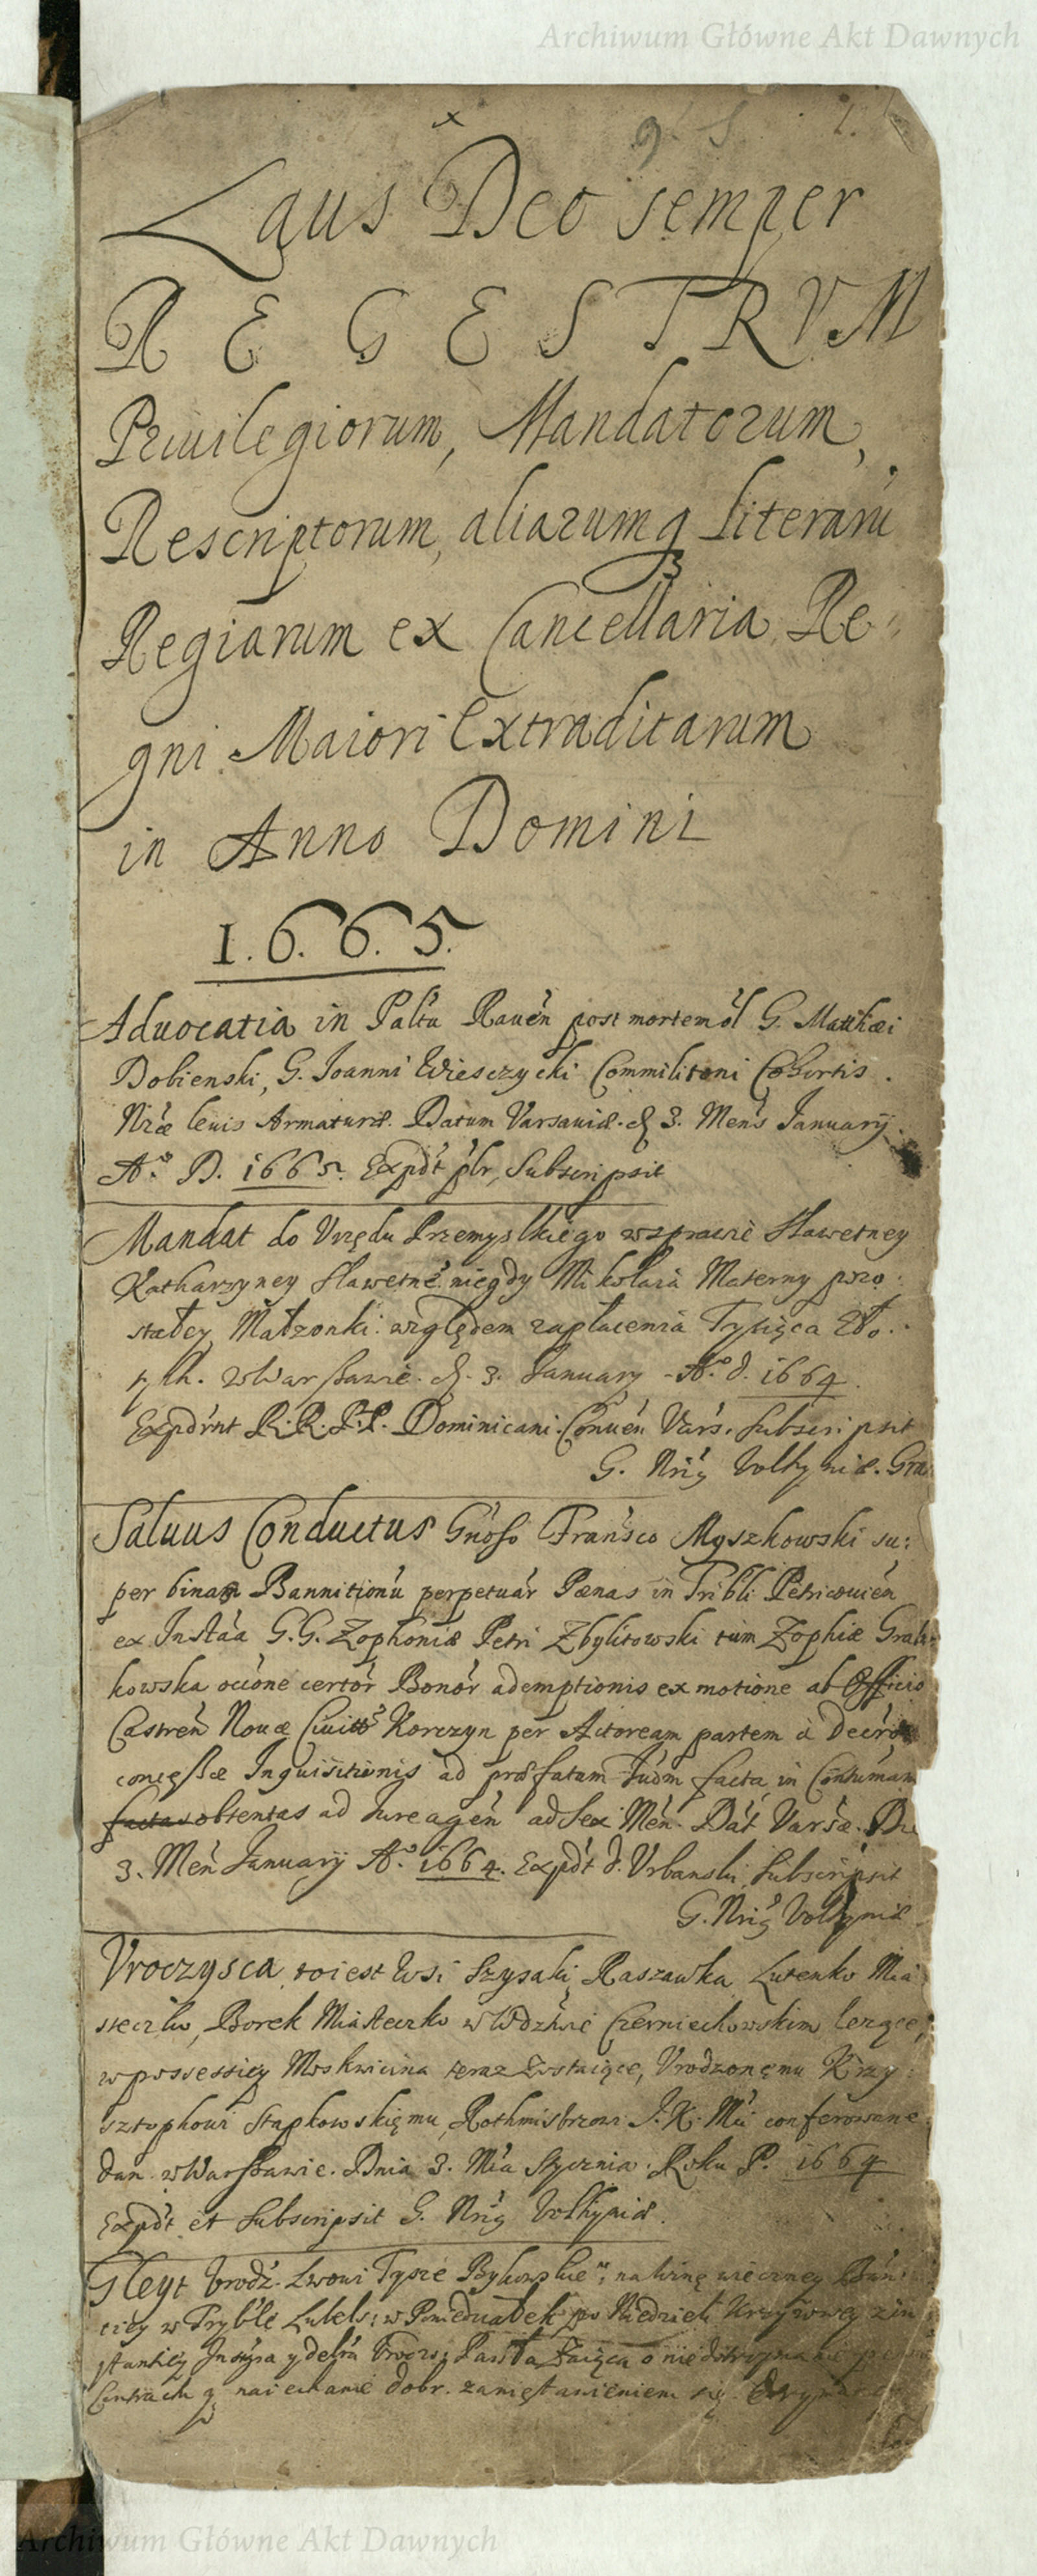 Archiwum Główne Akt Dawnych
Laus Deo semper
REGESTRVM
Priuilegiorum, Mandatorum,
Rescriptorum, aliarumq literarū
Regiarum ex Cancellaria Re:
gni Maiori Extraditarum
in Anno Domini
1.6.6.5.
Aduocatia in Paltu Rauen post mortem ol G. Matthæi
Dobienski, G. Joanni Wiesczycki Commilitoni Cohortis
Nræ leuis Armaturæ. Datum Varsauiæ. d 3. Mens January.
Aº. D. 1665. Expdt plr, Subscripsit
Mandat do Vrzędu Przemyslkiego wsprawie Sławetney
Katharzyney Sławetne niegdy Mikołaia Materny pozo:
stałey Małzonki względem zapłacenia Tysiąca Zło:
tych. w Warszawie. d. 3. January Aº. d. 1664
Expdrnt R.R.P.P. Dominicani Conuen Vars. Subscripsit
G. Nrıs Volhyniæ.
Saluus Conductus Gnoso Fransco Myszkowski su:
per binas Bannitionū perpetuar Pænas in Tribli Petricouien
ex Instaa G.G. Zophoniæ Petri Zbylitowski tum Zophiæ Grab
kowska occone certor Bonor ademptionis ex motione ab Officio
Castren Nouæ Ciuitts Korczyn per Actoream partem a Decro
concessæ Inquisitionis ad præfatam Judm facta in Contumam
factas obtentas ad Jure agen ad Sex Men. Dat Varsæ. Die
3. Men January Aº. 1664. Expdt d. Vrbanski, Subscripsit
G. Nrıs Volhyniæ
Vroczysca toiest Wsi Szysaki, Raszawka, Lutenko Mia
steczko, Borek Miasteczko w Wdztwie Czerniechowskim lezące,
w possessiey Moskwicina teraz zostaiące, Vrodzonemu Krzy:
sztophowi Stapkowskięmu, Rothmistrzowi J. K. Mci conferowane
dan w Warszawie. Dnia 3. Mca Stycznia. Roku P. 1664
Expdt et Subscripsit G. Nrıs Volhyniæ.
Gleyt Vrodz. Lwowi Bykowskie, na winę wieczney Bani
ciey w Tryble Lubels: w Poniedziałek po Niedzieli Krzyżowey z in
stantiey y Vrodz: Pawła Zaiąca o niedotrzymanie
Contractu y naiechanie dobr.
Archiwum Główne Akt Dawnych